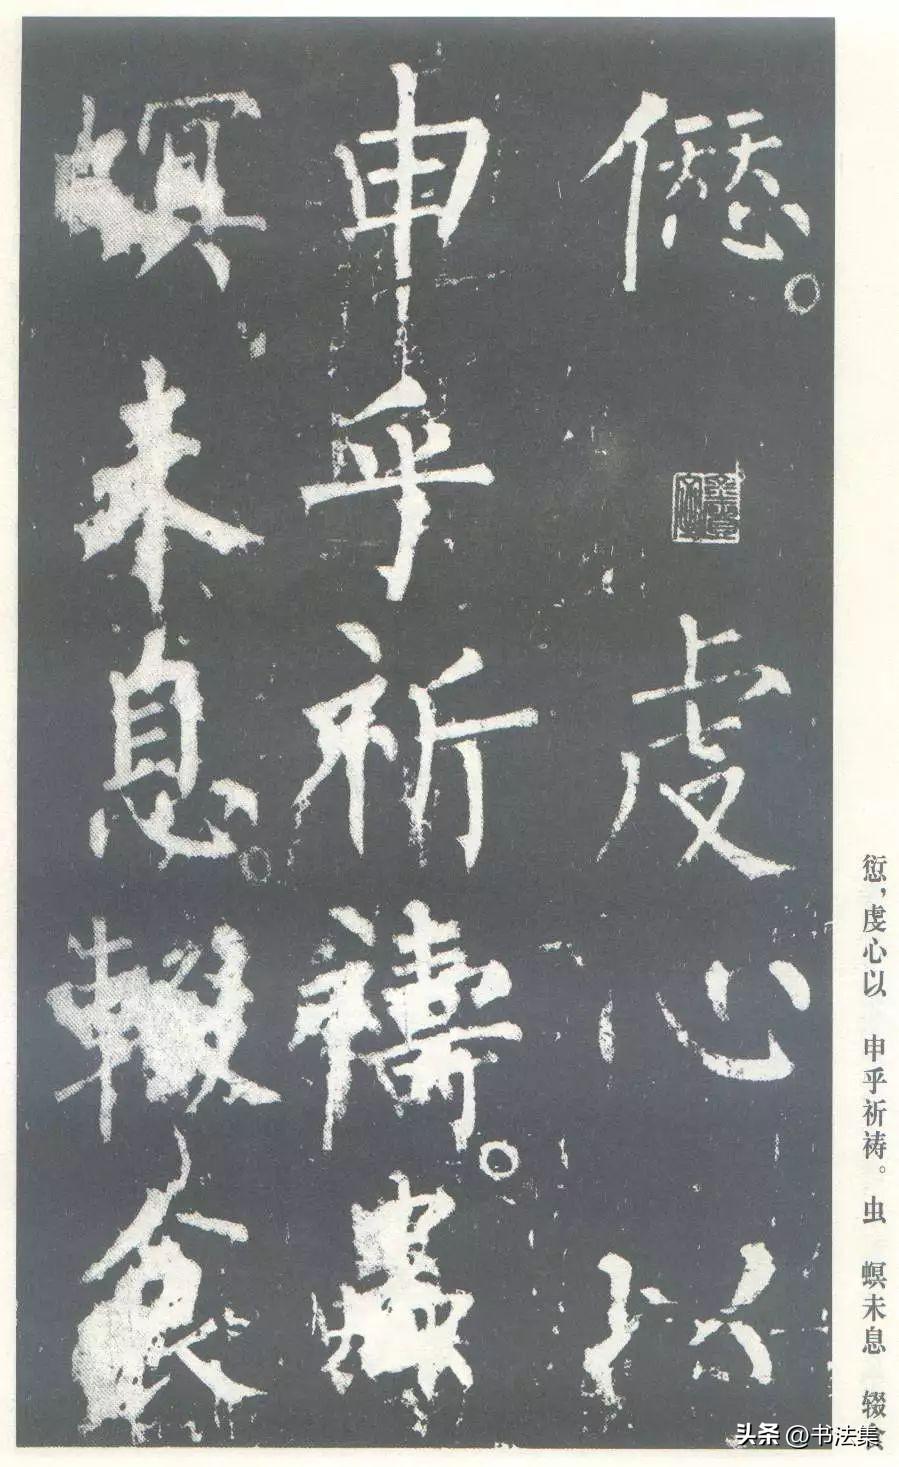 愆。虔心以
申乎祈禱。蟲
螟未息。輟食
愆，虔心以　申乎祈祷。虫　螟未息　辍食
头条 @书法集